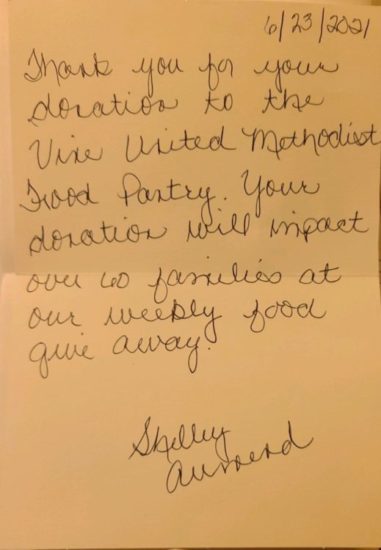 6/23/2021
Thank you for your
donation to the
Vine United Methodist
Food Pantry. Your
donation will impact
over 60 families at
our weekly food
give away.
Shelley